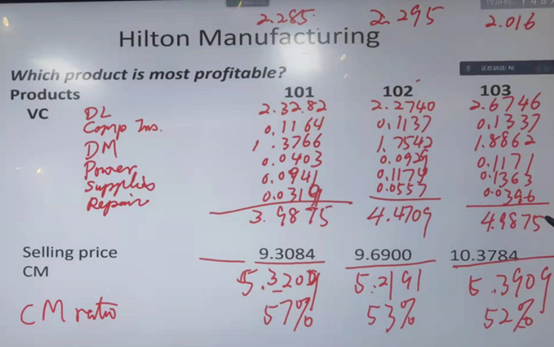 2.285 2.295 2.016
Hilton Manufacturing
Which product is most profitable?
Products 101 102 103
VC DL 2.3282 2.2740 2.6746
Comp Ins. 0.1164 0.1137 0.1337
DM 1.3766 1.7542 1.8862
Power 0.0403 0.0929 0.1171
Supplies 0.0941 0.1179 0.1363
Repair 0.0319 0.0557 0.0396
3.9875 4.4709 4.9875
Selling price 9.3084 9.6900 10.3784
CM 5.3209 5.2191 5.3909
CM ratio 57% 53% 52%